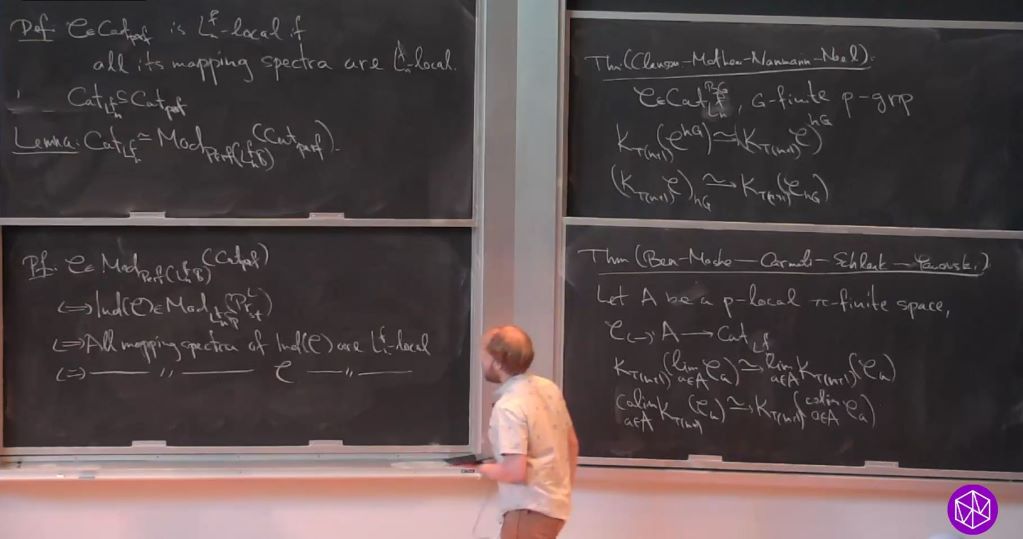 Def: C∈Cat_perf is L_n^f-local if
all its mapping spectra are L_n^f-local.
Cat_{L_n^f} ⊆ Cat_perf
Lemma: Cat_{L_n^f} ≃ Mod_{Perf(L_n^f S)}(Cat_perf).
Pf: C∈Mod_{Perf(L_n^f S)}(Cat_perf)
⟺ Ind(C)∈Mod_{L_n^f Sp}(Pr^L_st)
⟺ All mapping spectra of Ind(C) are L_n^f-local
⟺ —— " —— C —— " ——
Thm (Clausen-Mathew-Naumann-Noel):
C∈Cat_{L_n^f}^{BG}, G-finite p-grp
K_{T(n+1)}(C^{hG}) ≃→ (K_{T(n+1)} C)^{hG}
(K_{T(n+1)} C)_{hG} ≃→ K_{T(n+1)}(C_{hG})
Thm (Ben-Moshe—Carmeli-Schlank—Yanovski)
Let A be a p-local π-finite space,
C_(-): A → Cat_{L_n^f}
K_{T(n+1)}(lim_{a∈A} C_a) ≃→ lim_{a∈A} K_{T(n+1)}(C_a)
colim_{a∈A} K_{T(n+1)}(C_a) ≃→ K_{T(n+1)}(colim_{a∈A} C_a)